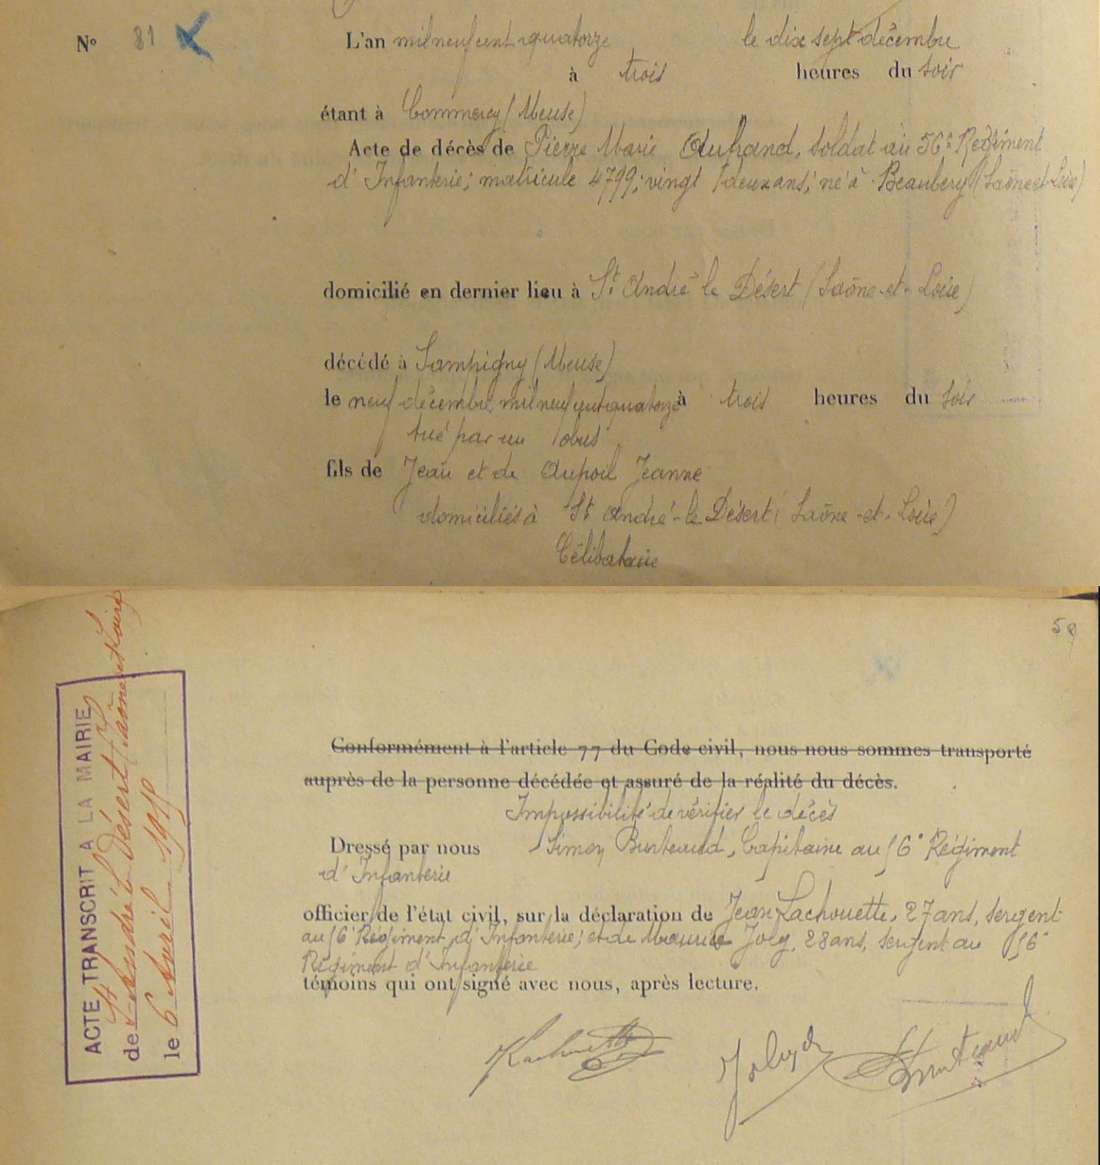 N° 81 L'an mil neuf cent quatorze le dix sept décembre
à trois heures du soir
étant à Commercy (Meuse)
Acte de décès de Pierre Marie Aufrand, soldat au 56e Régiment
d'Infanterie; matricule 4799; vingt deux ans; né à Beaubery (Saône et Loire)
domicilié en dernier lieu à St André le Désert (Saône-et-Loire)
décédé à Sampigny (Meuse)
le neuf décembre mil neuf cent quatorze à trois heures du soir
tué par un obus
fils de Jean et de Aupoil Jeanne
domiciliés à St André-le Désert (Saône-et-Loire)
Célibataire
59
ACTE TRANSCRIT A LA MAIRIE
de St André le Désert (Saône et Loire)
le 6 Avril 1915
Conformément à l'article 77 du Code civil, nous nous sommes transporté
auprès de la personne décédée et assuré de la réalité du décès.
Impossibilité de vérifier le décès
Dressé par nous Simon Burteaud, Capitaine au 56° Régiment
d'Infanterie
officier de l'état civil, sur la déclaration de Jean Lachouette, 27 ans, sergent
au 56° Régiment d'Infanterie; et de Maurice Joly, 28 ans, sergent au 56°
Régiment d'Infanterie
témoins qui ont signé avec nous, après lecture.
Lachouette